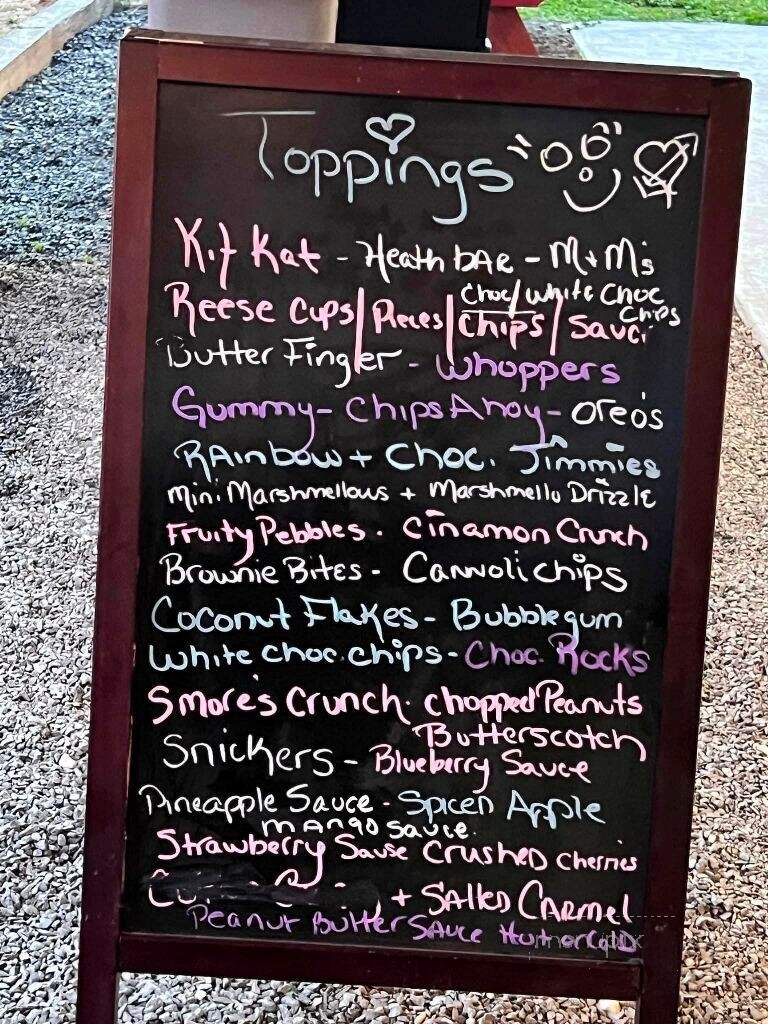 Toppings
Kit Kat - Heath bAR - M+M's
Choc/White Choc Chips
Reese Cups/Pieces/Chips/Sauc
Butter Finger - Whoppers
Gummy - Chips Ahoy - Oreo's
RAinbow + Choc. Jimmies
Mini Marshmellows + Marshmello Drizzle
Fruity Pebbles. Cinamon Crunch
Brownie Bites - Cannoli chips
Coconut Flakes - Bubblegum
White choc. chips - Choc. Rocks
Smore's Crunch. chopped Peanuts
Butterscotch
Snickers - Blueberry Sauce
Pineapple Sauce - Spiced Apple
mango sauce.
Strawberry Sause Crushed Cherries
+ SAlted CARmel
Peanut Butter SAuce Hot or Cold